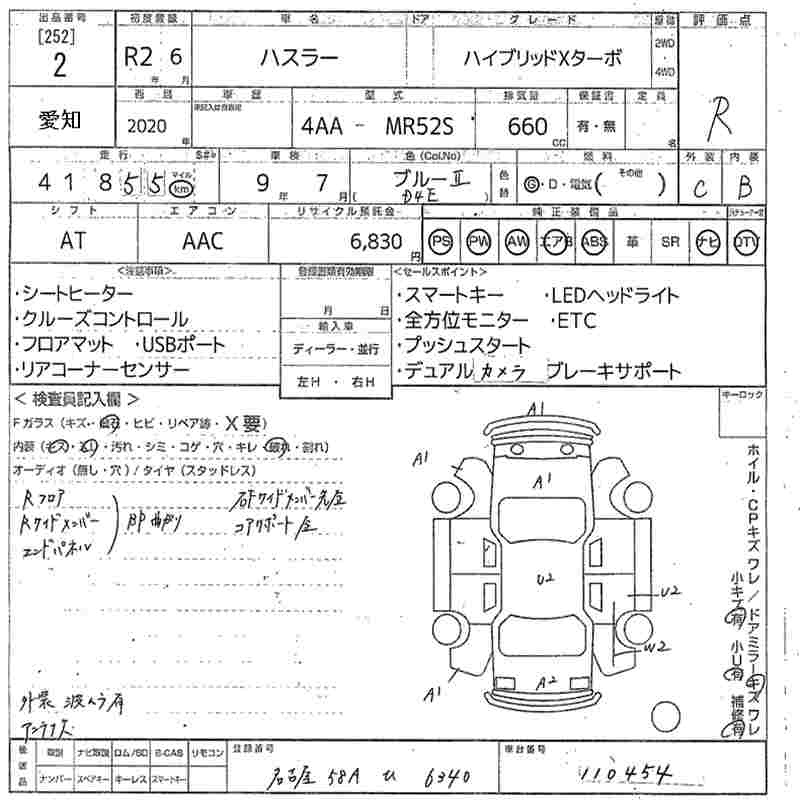 出品番号 初度登録 車名 ドア グレード 評価点
[252]
2 R2年 6月 ハスラー ハイブリッドXターボ 2WD・4WD R
西暦 車歴 型式 排気量 保証書 定員
愛知 2020年 4AA - MR52S 660cc 有・無 名
走行 車検 色(Col.No) 燃料 外装 内装
41855 マイル km 9年 7月 ブルーⅡ 色替 G・D・電気( その他 ) C B
シフト エアコン リサイクル預託金 純正装備品
AT AAC 6,830円 PS PW AW エアB ABS 革 SR ナビ DTV
<注意事項> 登録書類有効期限 <セールスポイント>
・シートヒーター 月 日 ・スマートキー ・LEDヘッドライト
・クルーズコントロール 輸入車 ・全方位モニター ・ETC
・フロアマット ・USBポート ディーラー・並行 ・プッシュスタート
・リアコーナーセンサー 左H・右H ・デュアルカメラブレーキサポート
<検査員記入欄> キーロック
Fガラス(キズ・飛石・ヒビ・リペア跡・X要)
内装(キズ・スリ・汚れ・シミ・コゲ・穴・キレ・破れ・割れ)
オーディオ(無し・穴)/タイヤ(スタッドレス)
Rフロア
Rサイドメンバー
エンドパネル
BP曲り
右Fサイドメンバー先歪
コアサポート歪
A1
A1
A1
U2
U2
W2
A1
A2
ホイル・CPキズワレ/ドアミラーキズワレ
小キズ有 小U有 補修有
外装 波ムラ有
アンテナ欠
後送品 取説 ナビ取説 ロム/SD B-CAS リモコン 登録番号 車台番号
ナンバー スペアキー キーレス スマートキー 名古屋 58A い 6340 110454